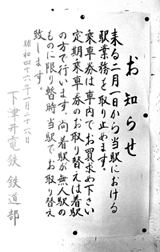 お知らせ
来る二月一日から当駅における
駅業務を取り止めます。
乗車券は車内でお買求め下さい
定期乗車券のお取り替えは着駅
の方で行います。尚着駅が無人駅の
ものに限り暫時当駅でお取り替え
致します。
昭和四十六年一月二十六日
下津井電鉄 鉄道部